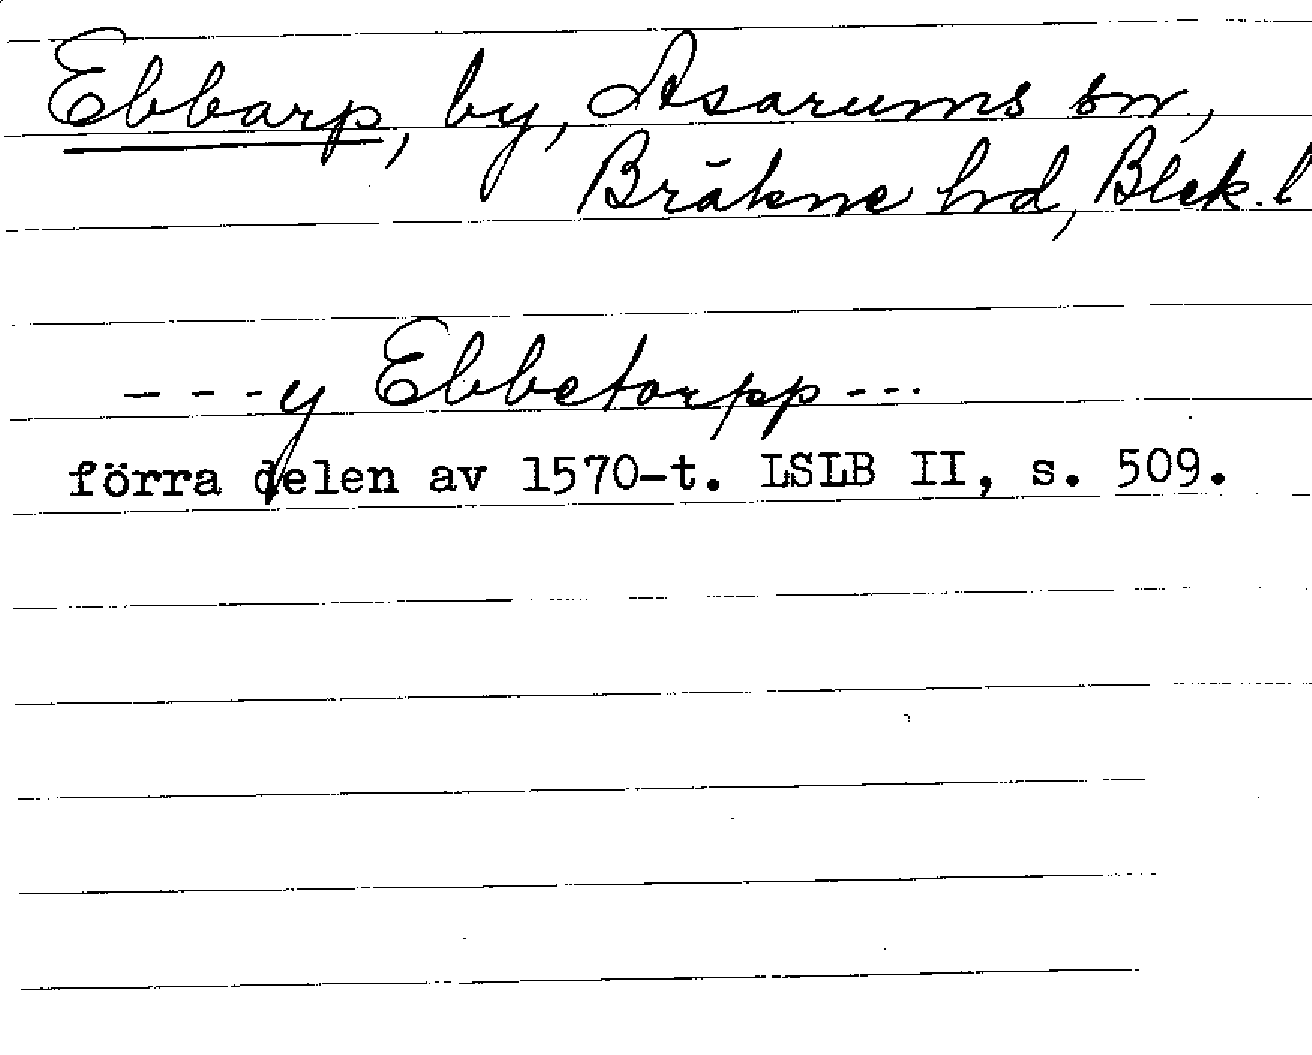 Ebbarp, by, Asarums sn,
Bräkne hd, Blek. l
- - - y Ebbetorpp - - -
förra delen av 1570-t. LSLB II, s. 509.